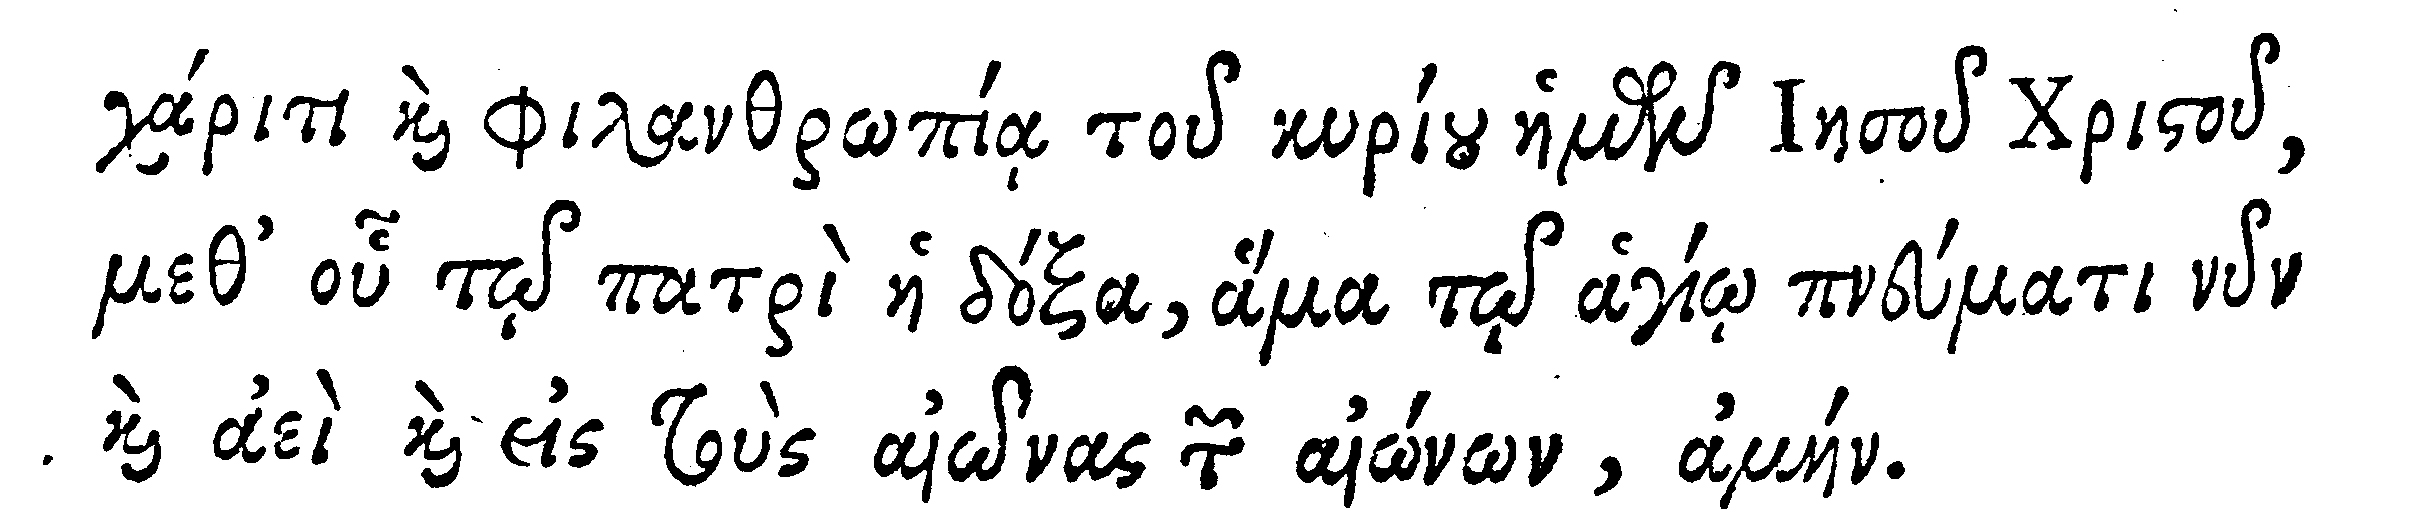 χάριτι ϗ̀ φιλανθρωπίᾳ τοῦ κυρίȣ ἡμῶν Ιησοῦ Χριϛοῦ,
μεθ’ οὗ τῷ πατρὶ ἡ δόξα, ἅμα τῷ ἁγίῳ πνεύματι νῦν
ϗ̀ ἀεὶ ϗ̀ εἰς τοὺς αἰῶνας τ῀ αἰώνων, ἀμήν.